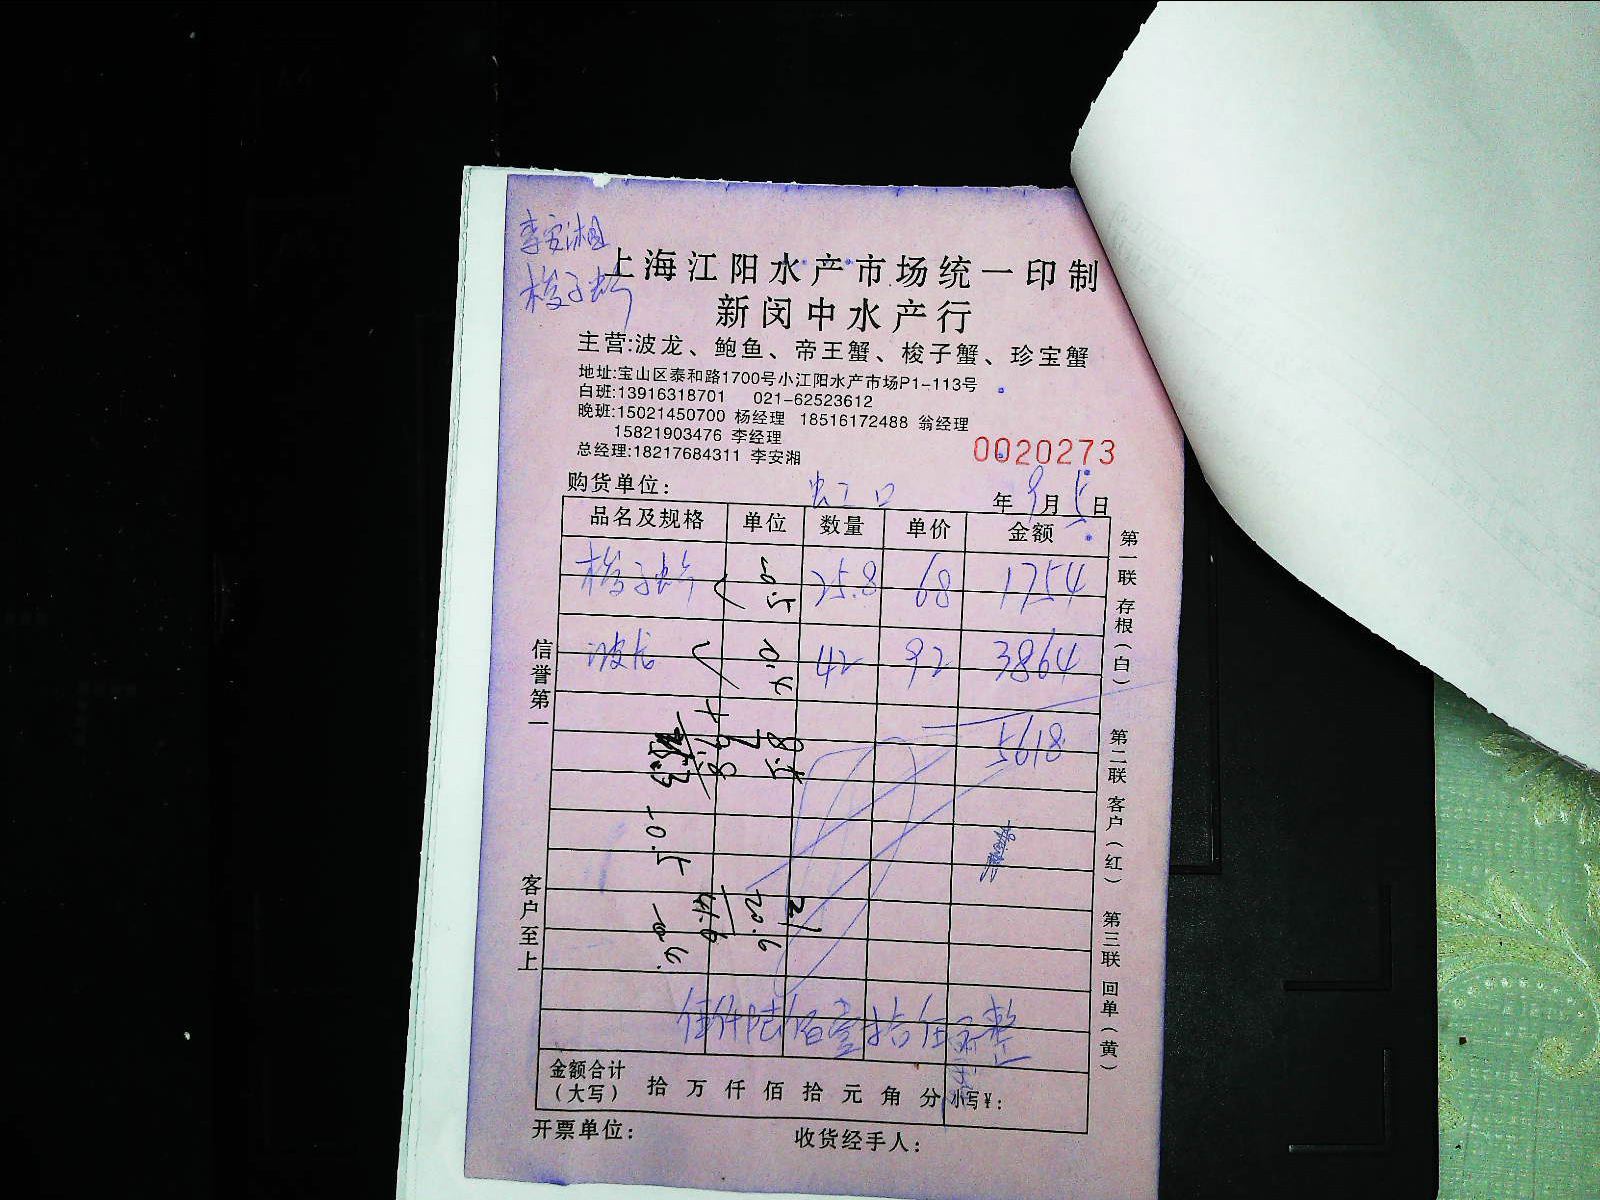 李安湘
梭子蟹
上海江阳水产市场统一印制
新闵中水产行
主营:波龙、鲍鱼、帝王蟹、梭子蟹、珍宝蟹
地址:宝山区泰和路1700号小江阳水产市场P1-113号
白班:13916318701 021-62523612
晚班:15021450700 杨经理 18516172488 翁经理
15821903476 李经理
总经理:18217684311 李安湘
0020273
购货单位: 虹口 年9月5日
品名及规格 单位 数量 单价 金额
梭子蟹 -0.5 25.8 68 1754
波龙 -0.4 42 92 3864
5618
8.5
+
-0.5
21
20.6
41.6
伍仟陆佰壹拾 整
金额合计(大写) 拾 万 仟 佰 拾 元 角 分 小写¥:
开票单位: 收货经手人:
信誉第一
客户至上
第一联 存根(白) 第二联 客户(红) 第三联 回单(黄)